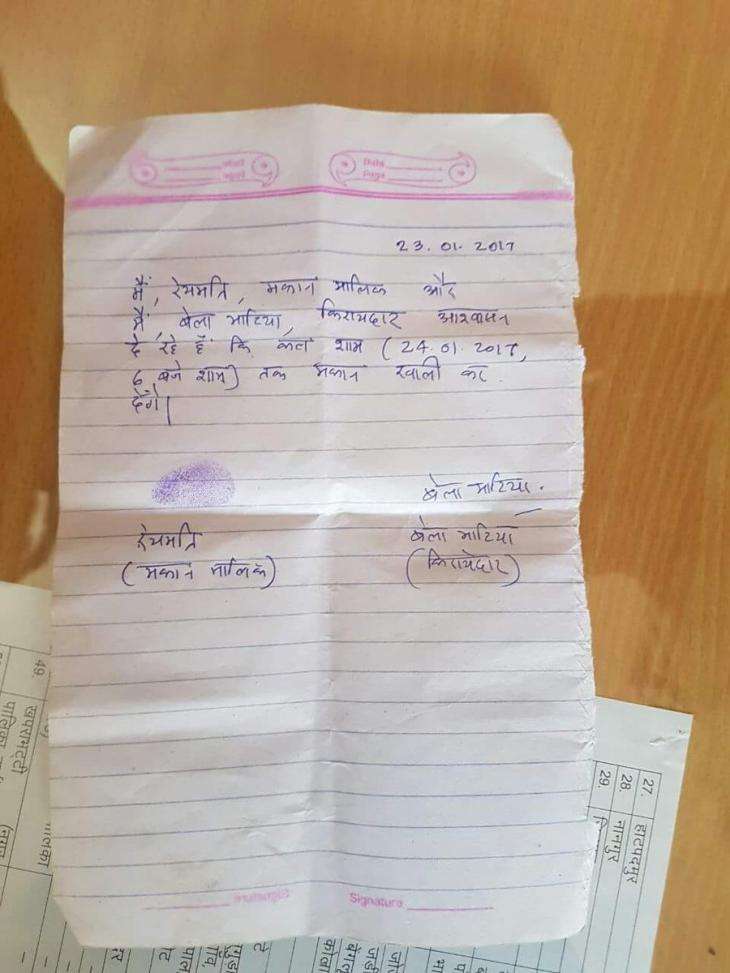 Date
Page
23.01.2017
मैं, रेयमत्रि, मकान मालिक और
मैं, बेला भाटिया, किरायदार आश्वासन
दे रहे हैं कि कल शाम (24.01.2017,
6 बजे शाम) तक मकान खाली कर
देंगे।
बेला भाटिया.
रेयमत्रि
बेला भाटिया
(मकान मालिक)
(किरायेदार)
Signature
49.
खपराभट्टी
27.
हाटपदमुर
28.
नानगुर
29.